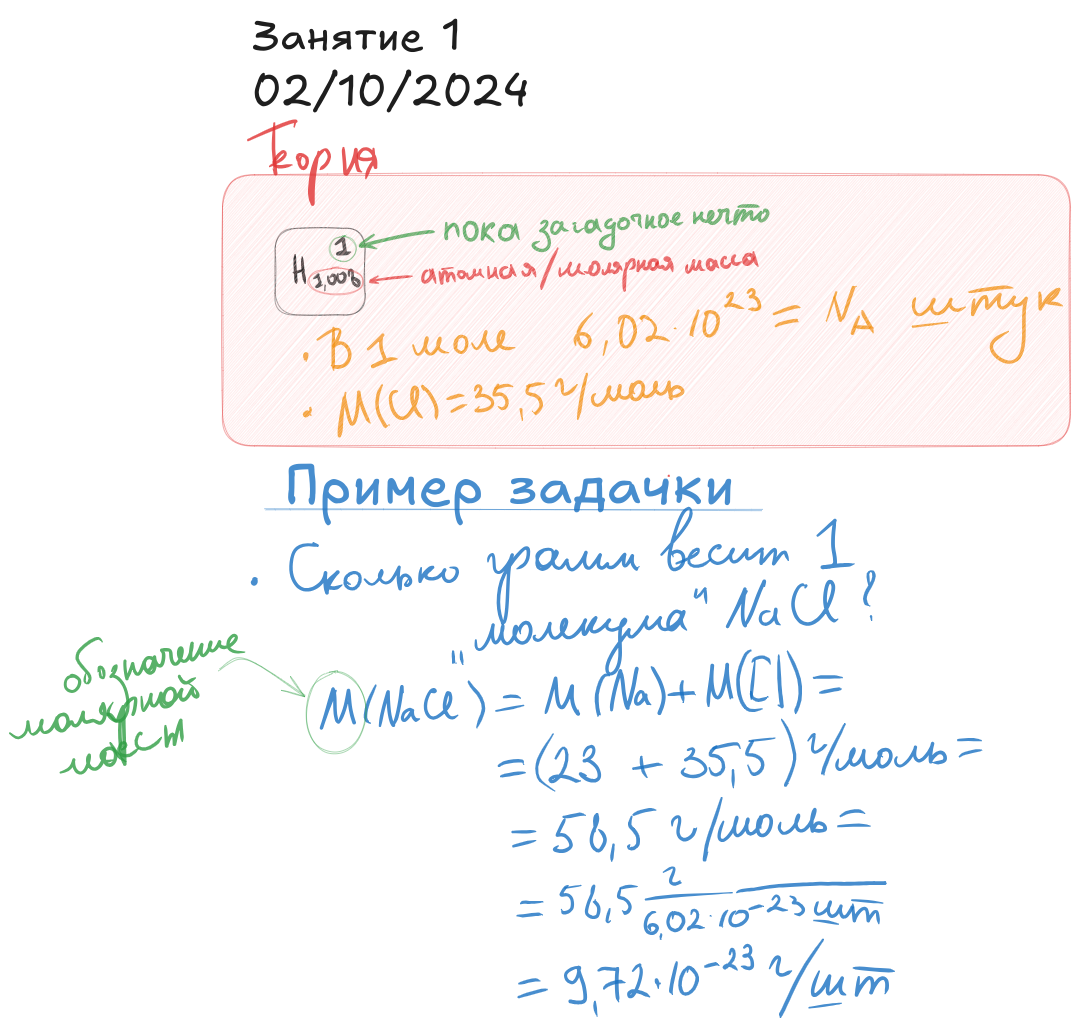 Занятие 1
02/10/2024
Теория
1 ← пока загадочное нечто
H 1,008 ← атомная/молярная масса
• В 1 моле 6,02·10²³ = N_A штук
• M(Cl)=35,5 г/моль
Пример задачки
• Сколько грамм весит 1
"молекула" NaCl?
обозначение
молярной
массы
M(NaCl) = M(Na)+M(Cl)=
=(23 + 35,5) г/моль=
= 58,5 г/моль =
= 58,5 г/(6,02·10⁻²³ шт)
= 9,72·10⁻²³ г/шт